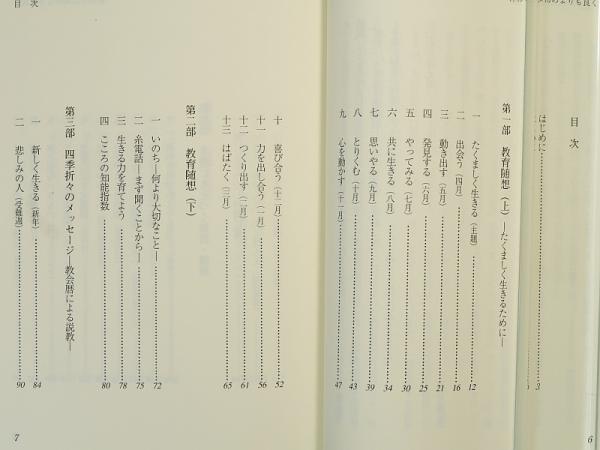 目次
はじめに 3
第一部 教育随想（上）―たくましく生きるために―
一 たくましく生きる（主題） 12
二 出会う（四月） 16
三 動き出す（五月） 21
四 発見する（六月） 25
五 やってみる（七月） 30
六 共に生きる（八月） 34
七 思いやる（九月） 39
八 とりくむ（十月） 43
九 心を動かす（十一月） 47
6
目次
十 喜び合う（十二月） 52
十一 力を出し合う（一月） 56
十二 つくり出す（二月） 61
十三 はばたく（三月） 65
第二部 教育随想（下）
一 いのち―何より大切なこと― 72
二 糸電話―まず聞くことから― 75
三 生きる力を育てよう 78
四 こころの知能指数 80
第三部 四季折々のメッセージ―教会暦による説教―
一 新しく生きる（新年） 84
二 悲しみの人（受難週） 90
7